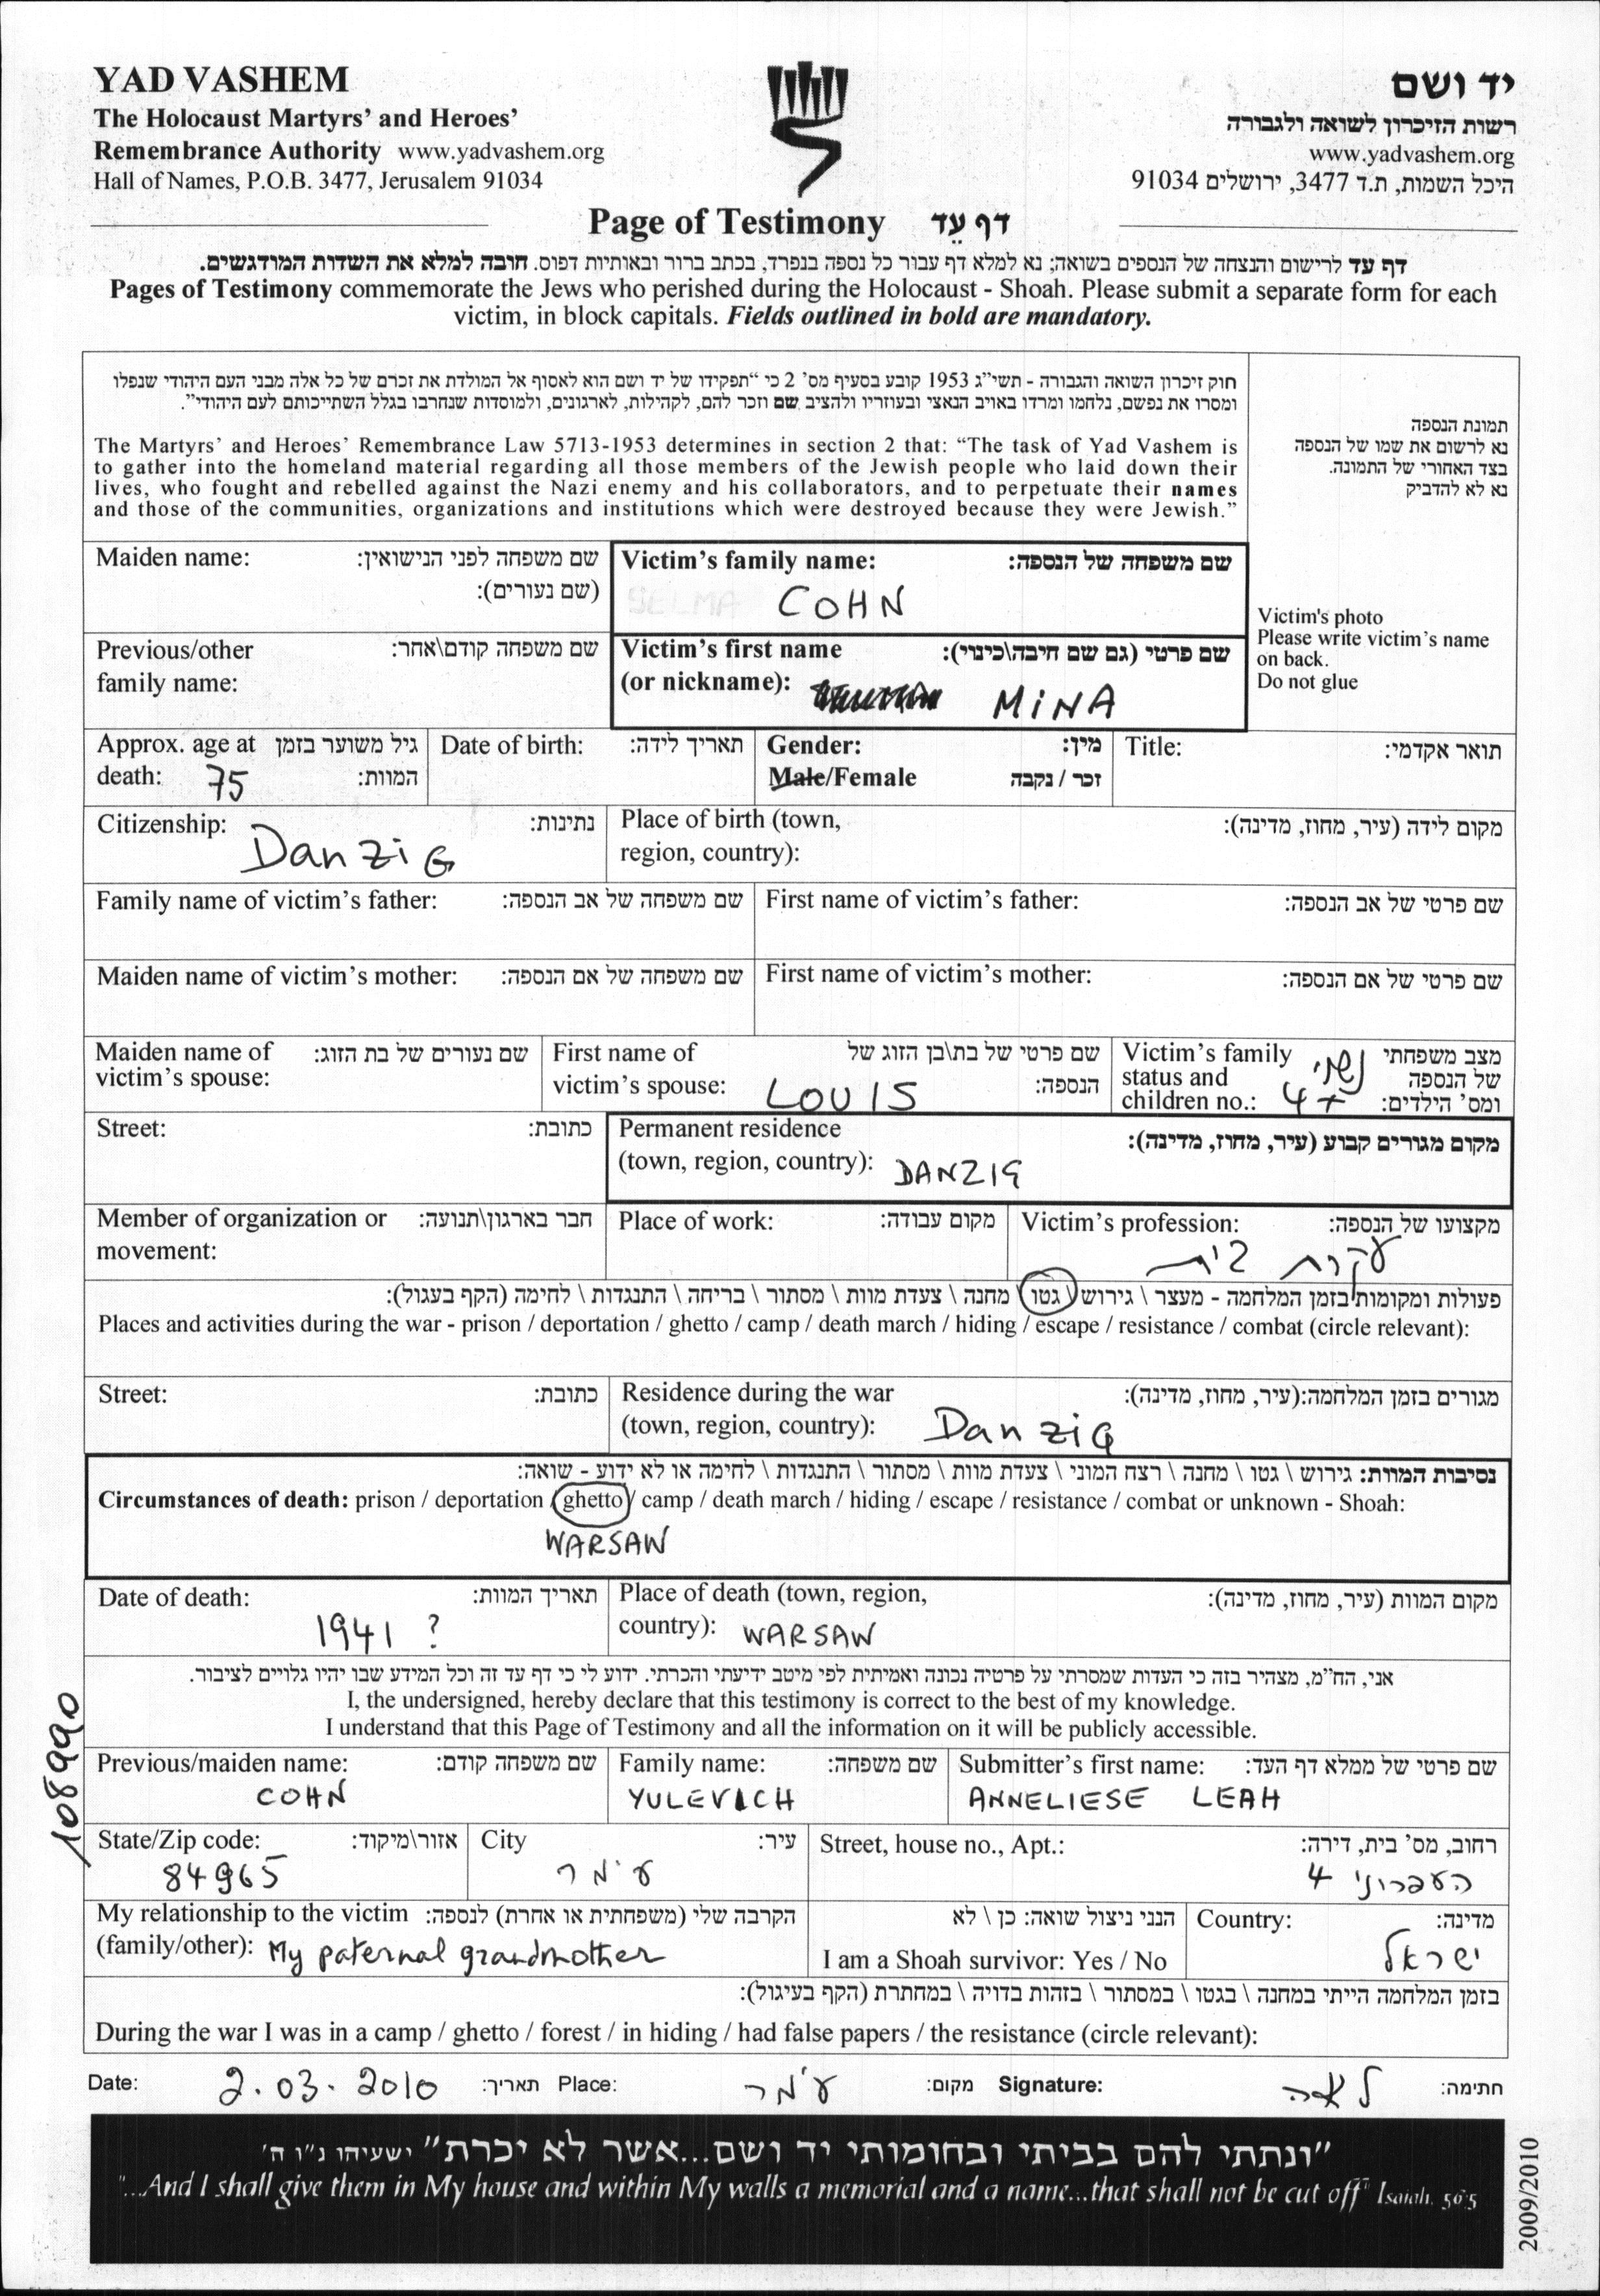 YAD VASHEM
The Holocaust Martyrs' and Heroes'
Remembrance Authority www.yadvashem.org
Hall of Names, P.O.B. 3477, Jerusalem 91034
יד ושם
רשות הזיכרון לשואה ולגבורה
www.yadvashem.org
היכל השמות, ת.ד 3477, ירושלים 91034
Page of Testimony דף עֵד
דף עד לרישום והנצחה של הנספים בשואה; נא למלא דף עבור כל נספה בנפרד, בכתב ברור ובאותיות דפוס. חובה למלא את השדות המודגשים.
Pages of Testimony commemorate the Jews who perished during the Holocaust - Shoah. Please submit a separate form for each
victim, in block capitals. Fields outlined in bold are mandatory.
חוק זיכרון השואה והגבורה - תשי"ג 1953 קובע בסעיף מס' 2 כי "תפקידו של יד ושם הוא לאסוף אל המולדת את זכרם של כל אלה מבני העם היהודי שנפלו
ומסרו את נפשם, נלחמו ומרדו באויב הנאצי ובעוזריו ולהציב שם וזכר להם, לקהילות, לארגונים, ולמוסדות שנחרבו בגלל השתייכותם לעם היהודי".
The Martyrs' and Heroes' Remembrance Law 5713-1953 determines in section 2 that: "The task of Yad Vashem is
to gather into the homeland material regarding all those members of the Jewish people who laid down their
lives, who fought and rebelled against the Nazi enemy and his collaborators, and to perpetuate their names
and those of the communities, organizations and institutions which were destroyed because they were Jewish."
תמונת הנספה
נא לרשום את שמו של הנספה
בצד האחורי של התמונה.
נא לא להדביק
Victim's photo
Please write victim's name
on back.
Do not glue
Maiden name: שם משפחה לפני הנישואין:
(שם נעורים):
Victim's family name: שם משפחה של הנספה:
SELMA COHN
Previous/other שם משפחה קודם\אחר:
family name:
Victim's first name שם פרטי (גם שם חיבה\כינוי):
(or nickname): MINA
Approx. age at גיל משוער בזמן
death: 75 המוות:
Date of birth: תאריך לידה:
Gender: מין:
Male/Female זכר / נקבה
Title: תואר אקדמי:
Citizenship: Danzig נתינות:
Place of birth (town, מקום לידה (עיר, מחוז, מדינה):
region, country):
Family name of victim's father: שם משפחה של אב הנספה:
First name of victim's father: שם פרטי של אב הנספה:
Maiden name of victim's mother: שם משפחה של אם הנספה:
First name of victim's mother: שם פרטי של אם הנספה:
Maiden name of שם נעורים של בת הזוג:
victim's spouse:
First name of שם פרטי של בת\בן הזוג של
victim's spouse: LOUIS הנספה:
Victim's family נשוי מצב משפחתי
status and של הנספה
children no.: 4+ ומס' הילדים:
Street: כתובת:
Permanent residence מקום מגורים קבוע (עיר, מחוז, מדינה):
(town, region, country): DANZIG
Member of organization or חבר בארגון\תנועה:
movement:
Place of work: מקום עבודה:
Victim's profession: מקצועו של הנספה:
עקרת בית
פעולות ומקומות בזמן המלחמה - מעצר \ גירוש \ גטו \ מחנה \ צעדת מוות \ מסתור \ בריחה \ התנגדות \ לחימה (הקף בעגול):
Places and activities during the war - prison / deportation / ghetto / camp / death march / hiding / escape / resistance / combat (circle relevant):
Street: כתובת:
Residence during the war מגורים בזמן המלחמה:(עיר, מחוז, מדינה):
(town, region, country): Danzig
נסיבות המוות: גירוש \ גטו \ מחנה \ רצח המוני \ צעדת מוות \ מסתור \ התנגדות \ לחימה או לא ידוע - שואה:
Circumstances of death: prison / deportation / ghetto / camp / death march / hiding / escape / resistance / combat or unknown - Shoah:
WARSAW
Date of death: תאריך המוות:
1941 ?
Place of death (town, region, מקום המוות (עיר, מחוז, מדינה):
country): WARSAW
אני, הח"מ, מצהיר בזה כי העדות שמסרתי על פרטיה נכונה ואמיתית לפי מיטב ידיעתי והכרתי. ידוע לי כי דף עד זה וכל המידע שבו יהיו גלויים לציבור.
I, the undersigned, hereby declare that this testimony is correct to the best of my knowledge.
I understand that this Page of Testimony and all the information on it will be publicly accessible.
108990
Previous/maiden name: שם משפחה קודם:
COHN
Family name: שם משפחה:
YULEVICH
Submitter's first name: שם פרטי של ממלא דף העד:
ANNELIESE LEAH
State/Zip code: אזור\מיקוד:
84965
City עיר:
עומר
Street, house no., Apt.: רחוב, מס' בית, דירה:
העפרוני 4
My relationship to the victim הקרבה שלי (משפחתית או אחרת) לנספה:
(family/other): My paternal grandmother
הנני ניצול שואה: כן \ לא
I am a Shoah survivor: Yes / No
Country: מדינה:
ישראל
בזמן המלחמה הייתי במחנה \ בגטו \ במסתור \ בזהות בדויה \ במחתרת (הקף בעיגול):
During the war I was in a camp / ghetto / forest / in hiding / had false papers / the resistance (circle relevant):
Date: 2.03.2010 תאריך: Place: עומר מקום: Signature: לאה חתימה:
"ונתתי להם בביתי ובחומותי יד ושם...אשר לא יכרת" ישעיהו נ"ו ה'
"...And I shall give them in My house and within My walls a memorial and a name...that shall not be cut off" Isaiah, 56:5
2009/2010